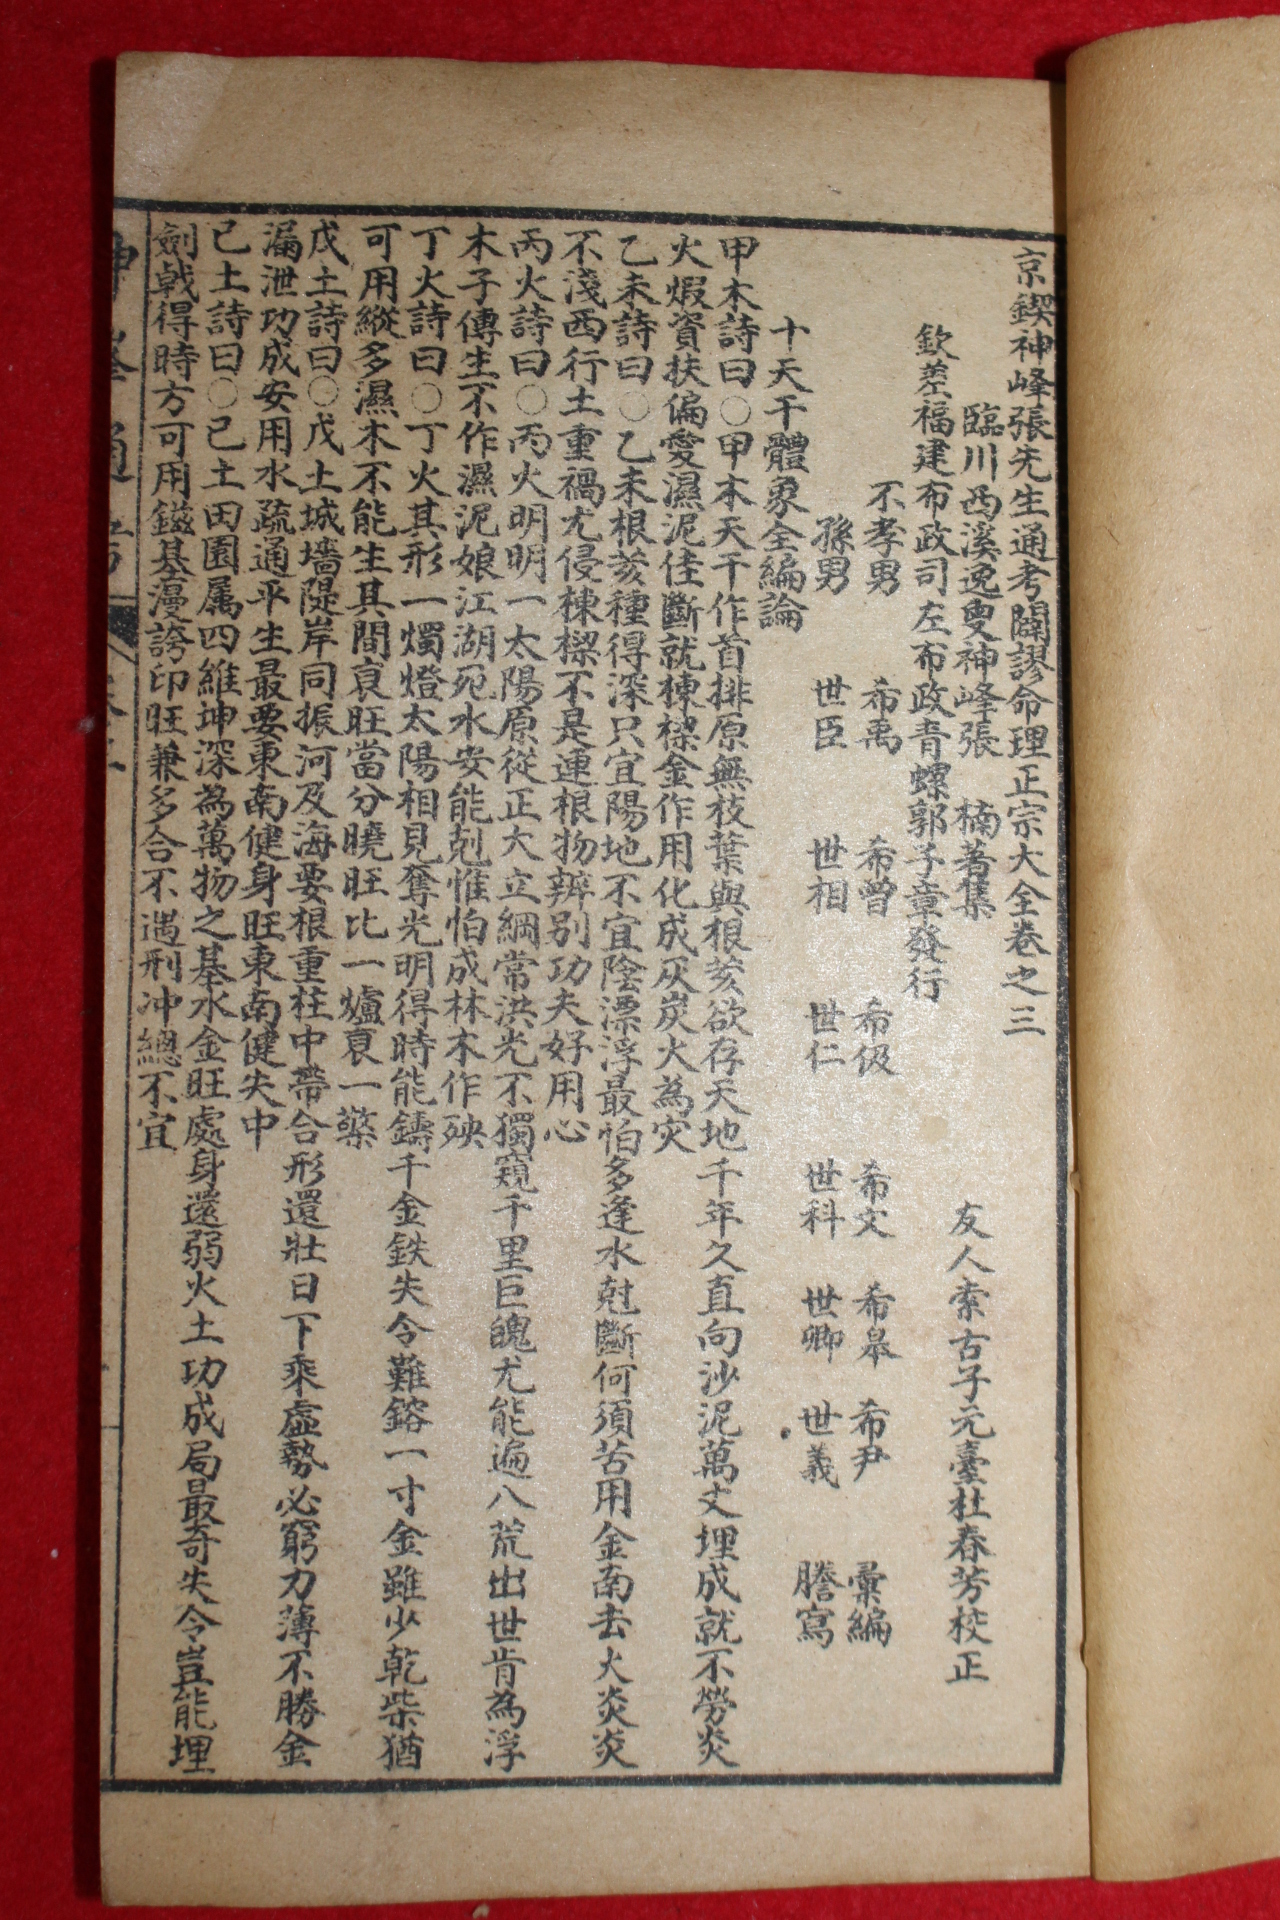 京鍥神峰張先生通考闢謬命理正宗大全卷之三
臨川西溪逸叟神峰張 楠著集 友人索古子元臺杜春芳校正
欽差福建布政司左布政青螺郭子章發行
不孝男 希禹 希曾 希伋 希文 希皋 希尹 彙編
孫男 世臣 世相 世仁 世科 世卿 世義 謄寫
十天干體象全編論
甲木詩曰○甲木天干作首排原無枝葉與根荄欲存天地千年久直向沙泥萬丈埋成就不勞炎
火煆資扶偏愛濕泥佳斷就棟樑金作用化成灰炭火為灾
乙未詩曰○乙未根荄種得深只宜陽地不宜陰漂浮最怕多逢水尅斷何須苦用金南去火炎炎
不淺西行土重禍尤侵棟樑不是連根物辨别功夫好用心
丙火詩曰○丙火明明一太陽原從正大立綱常洪光不獨窺千里巨魄尤能遍八荒出世肯為浮
木子傳生不作濕泥娘江湖死水安能剋惟怕成林木作殃
丁火詩曰○丁火其形一燭燈太陽相見奪光明得時能鑄千金鉄失令難鎔一寸金雖少乾柴猶
可用縱多濕木不能生其間衰旺當分曉旺比一爐衰一檠
戊土詩曰○戊土城墻隄岸同振河及海要根重柱中帶合形還壯日下乘虛勢必窮力薄不勝金
漏泄功成安用水疏通平生最要東南健身旺東南健失中
己土詩曰○己土田園属四維坤深為萬物之基水金旺處身還弱火土功成局最奇失令豈能埋
劍戟得時方可用鎡基漫誇印旺兼多合不遇刑冲總不宜